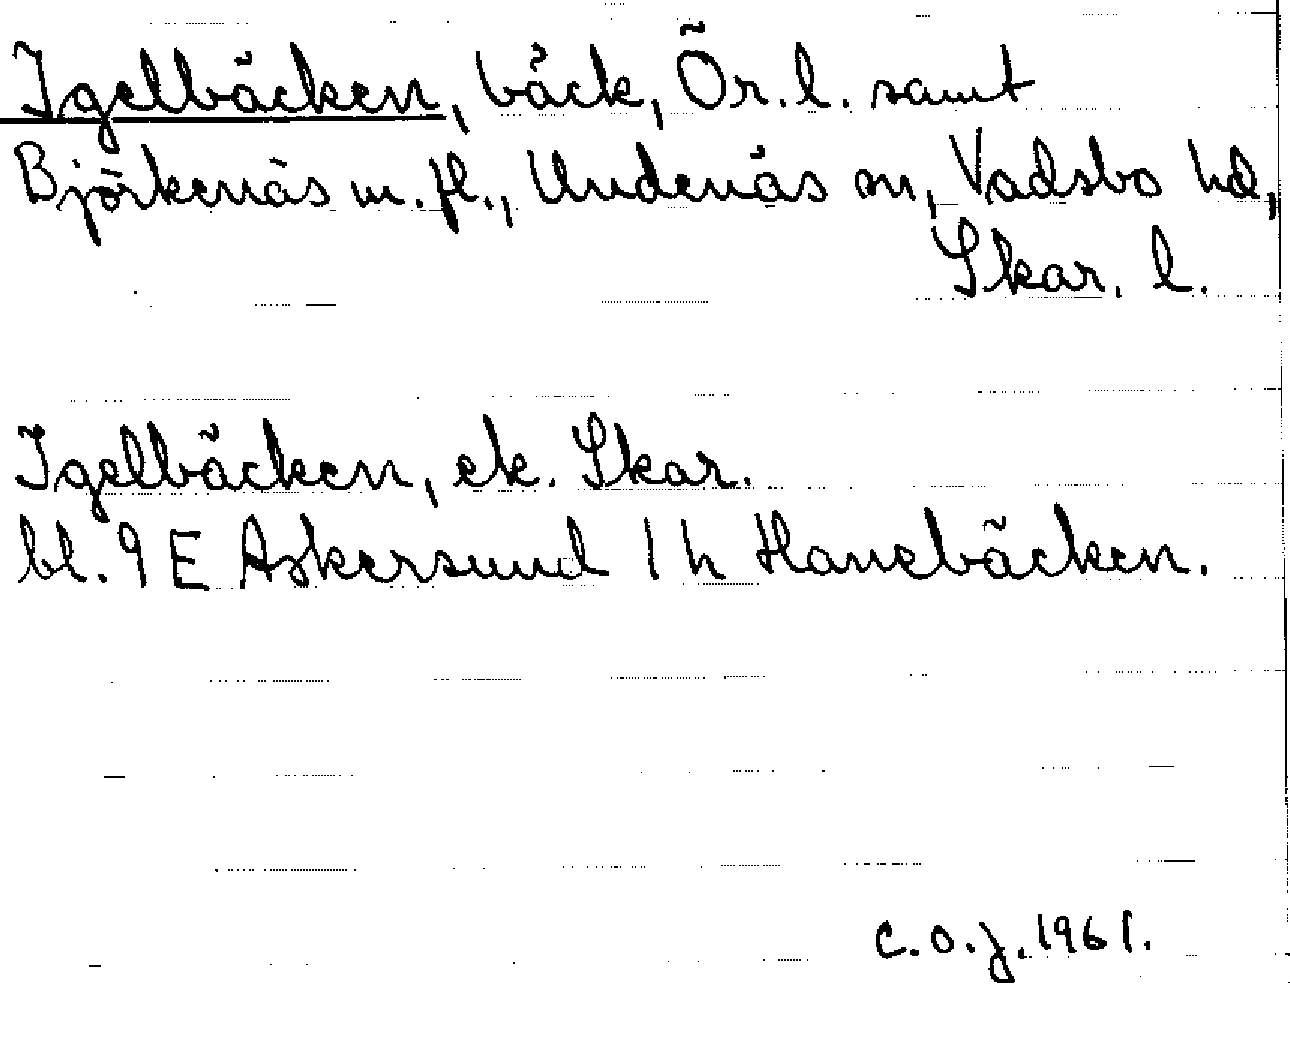 Igelbäcken, bäck, Ör. l. samt
Björkenäs m. fl., Undenäs sn, Vadsbo hd,
Skar. l.
Igelbäcken, ek. Skar.
bl. 9 E Askersund 1 h Hanebäcken.
C.O.J. 1961.